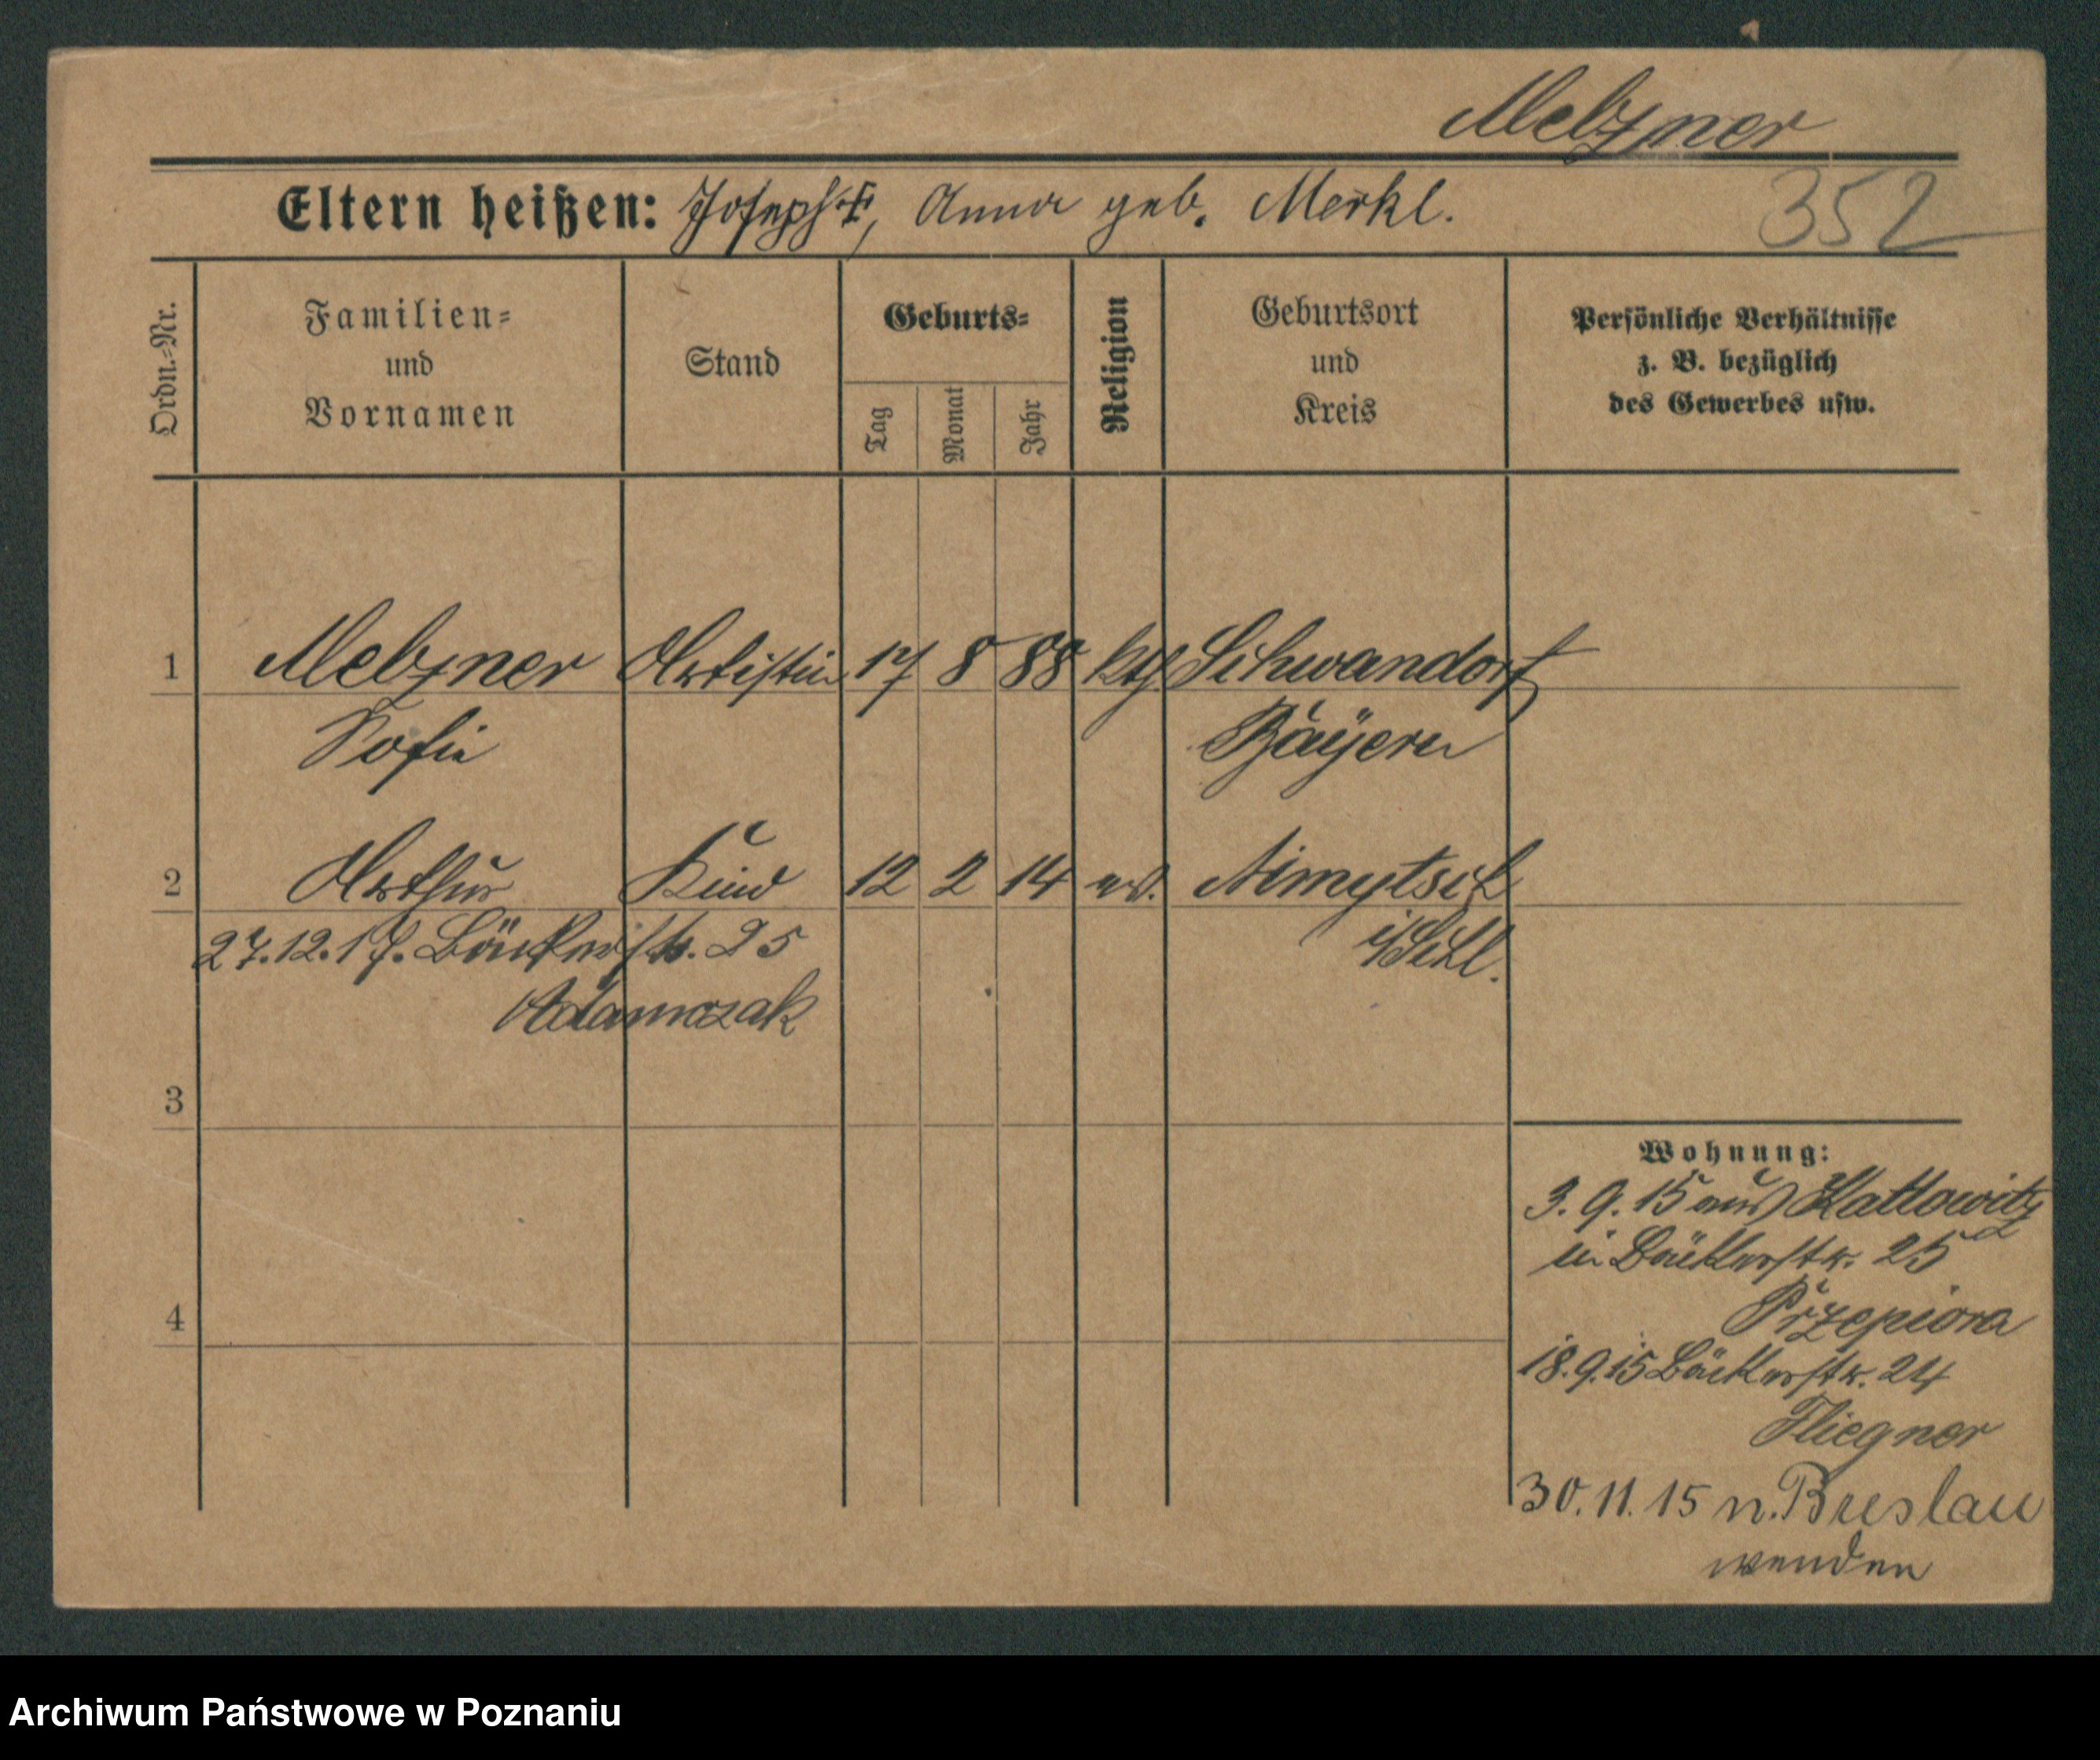 Melzner
Eltern heißen: Joseph †, Anna geb. Merkl.
352
Ordn.-Nr.
Familien-
und
Vornamen
Stand
Geburts-
Tag
Monat
Jahr
Religion
Geburtsort
und
Kreis
Persönliche Verhältnisse
z. B. bezüglich
des Gewerbes usw.
1 Melzner Artistin 17 8 88 kth. Schwandorf
Sofie Bayern
2 Arthur Kind 12 2 14 ev. Nimptsch
i/Schl.
27.12.17. Bäckerstr. 25
Adamczak
3
4
Wohnung:
3. 9. 15 aus Kattowitz
in Bäckerstr. 25
Przepiora
18.9.15 Bäckerstr. 24
Fliegner
30. 11. 15 n. Breslau
wenden
Archiwum Państwowe w Poznaniu